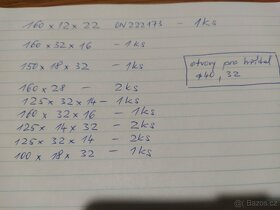 160 x 12 x 22 ČN 222173 - 1ks
160 x 32 x 16 - 1ks
150 x 18 x 32 - 1ks
otvory pro hřídel
ø40, 32
160 x 28 - 2ks
125 x 32 x 14 - 1ks
160 x 32 x 16 - 1ks
125 x 14 x 32 - 2ks
125 x 32 x 14 - 2ks
100 x 18 x 32 - 1ks
Bazoš.cz